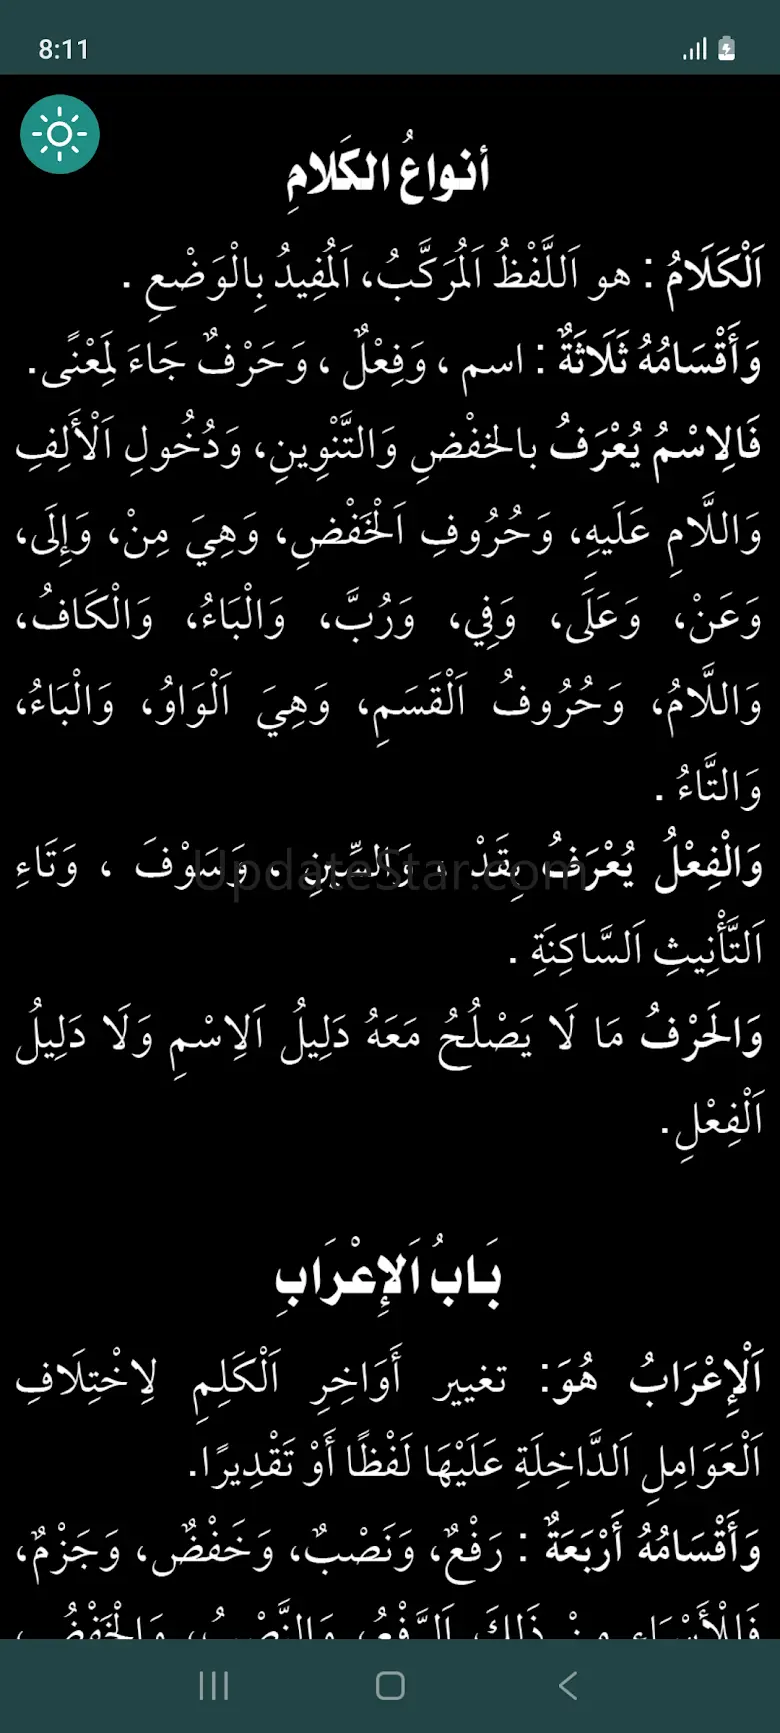 8:11
أنواعُ الكَلامِ
اَلْكَلَامُ : هو اَللَّفْظُ اَلْمُرَكَّبُ، اَلْمُفِيدُ بِالْوَضْعِ .
وَأَقْسَامُهُ ثَلَاثَةٌ : اسم ، وَفِعْلٌ ، وَحَرْفٌ جَاءَ لِمَعْنًى.
فَالِاسْمُ يُعْرَفُ بالخفْضِ وَالتَّنْوِينِ، وَدُخُولِ اَلْأَلِفِ
وَاللَّامِ عَلَيهِ، وَحُرُوفِ اَلْخَفْضِ، وَهِيَ مِنْ، وَإِلَى،
وَعَنْ، وَعَلَى، وَفِي، وَرُبَّ، وَالْبَاءُ، وَالْكَافُ،
وَاللَّامُ، وَحُرُوفُ اَلْقَسَمِ، وَهِيَ اَلْوَاوُ، وَالْبَاءُ،
وَالتَّاءُ .
وَالْفِعْلُ يُعْرَفُ بِقَدْ ، وَالسِّينِ ، وَسَوْفَ ، وَتَاءِ
UpdateStar.com
اَلتَّأْنِيثِ اَلسَّاكِنَةِ .
وَالْحَرْفُ مَا لَا يَصْلُحُ مَعَهُ دَلِيلُ اَلِاسْمِ وَلَا دَلِيلُ
اَلْفِعْلِ.
بَابُ اَلإِعْرَابِ
اَلْإِعْرَابُ هُوَ: تغيير أَوَاخِرِ اَلْكَلِمِ لِاخْتِلَافِ
اَلْعَوَامِلِ اَلدَّاخِلَةِ عَلَيْهَا لَفْظًا أَوْ تَقْدِيرًا.
وَأَقْسَامُهُ أَرْبَعَةٌ : رَفْعٌ، وَنَصْبٌ، وَخَفْضٌ، وَجَزْمٌ،
فَلِلْأَسْمَاءِ مِنْ ذَلِكَ اَلرَّفْعُ، وَالنَّصْبُ، وَالْخَفْضُ ،